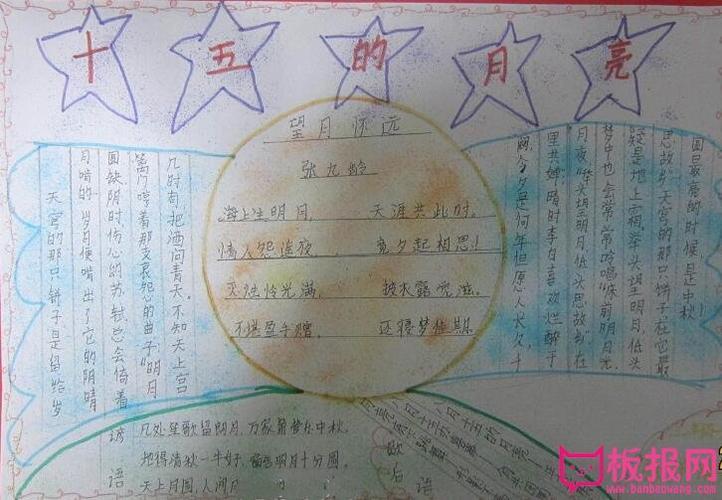 十五的月亮
望月怀远
张九龄
海上生明月，天涯共此时。
情人怨遥夜，竟夕起相思！
灭烛怜光满，披衣露觉滋。
不堪盈手赠，还寝梦佳期
圆且最亮的时候是中秋！
思故乡"天宫的那只饼子在它最
疑是地上霜，举头望明月，低头
梦中也会常常吟唱"床前明月光，
月夜，"举头望明月低头思故乡"在
里共婵，晴时李白喜欢烂醉于
阙，今夕是何年但愿人长久，千
几时有，把酒问青天。不知天上宫
篱，哼着那支哀怨的曲子"明月
圆缺阴时伤心的苏轼总会倚着
月啃的岁月便啃出了它的阴晴
天宫的那只饼子是留给岁
谚语
几处笙歌留朗月，万家箫管乐中秋。
地得清秋一半好，窗含明月十分圆。
天上月圆，人间
歇后语
八月十五的月亮
板报网
www.banbaowang.com